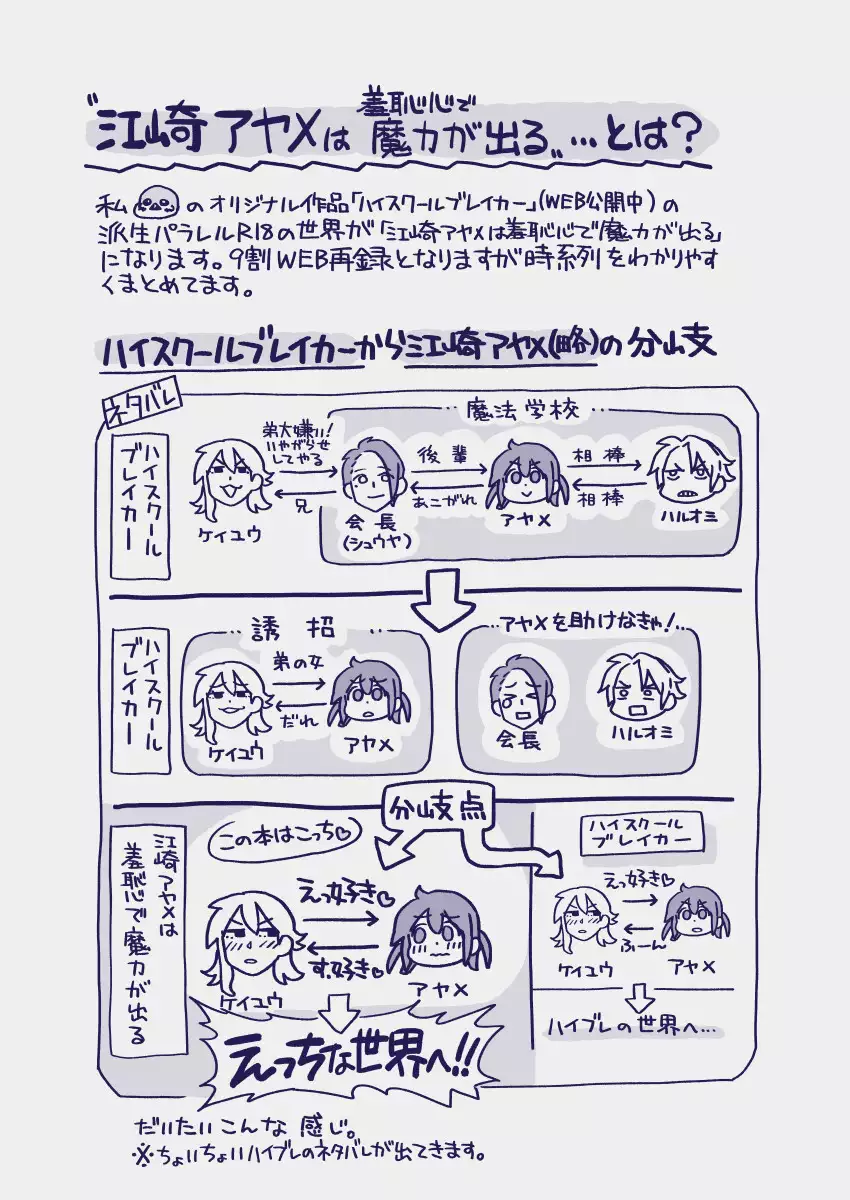 “江崎アヤメは 羞恥心で魔力が出る„…とは?
私のオリジナル作品「ハイスクールブレイカー」(WEB公開中)の
派生パラレルR18の世界が「江崎アヤメは羞恥心で魔力が出る」
になります。9割WEB再録となりますが時系列をわかりやす
くまとめてます。
ハイスクールブレイカーから江崎アヤメ(略)の分岐
ネタバレ
ハイスクール
ブレイカー
‥魔法学校‥
弟大嫌い!
いやがらせ
してやる
兄
後輩
あこがれ
相棒
相棒
ケイユウ
会長
(シュウヤ)
アヤメ
ハルオミ
ハイスクール
ブレイカー
‥誘招‥
弟の女
だれ
ケイユウ
アヤメ
‥アヤメを助けなきゃ!‥
会長
ハルオミ
分岐点
江崎アヤメは
羞恥心で魔力が出る
この本はこっち♡
えっ好き♡
す、好き♡
ケイユウ
アヤメ
えっちな世界へ!!
ハイスクール
ブレイカー
えっ好き♡
ふーん
ケイユウ
アヤメ
ハイブレの世界へ…
だいたいこんな感じ。
※ちょいちょいハイブレのネタバレが出てきます。